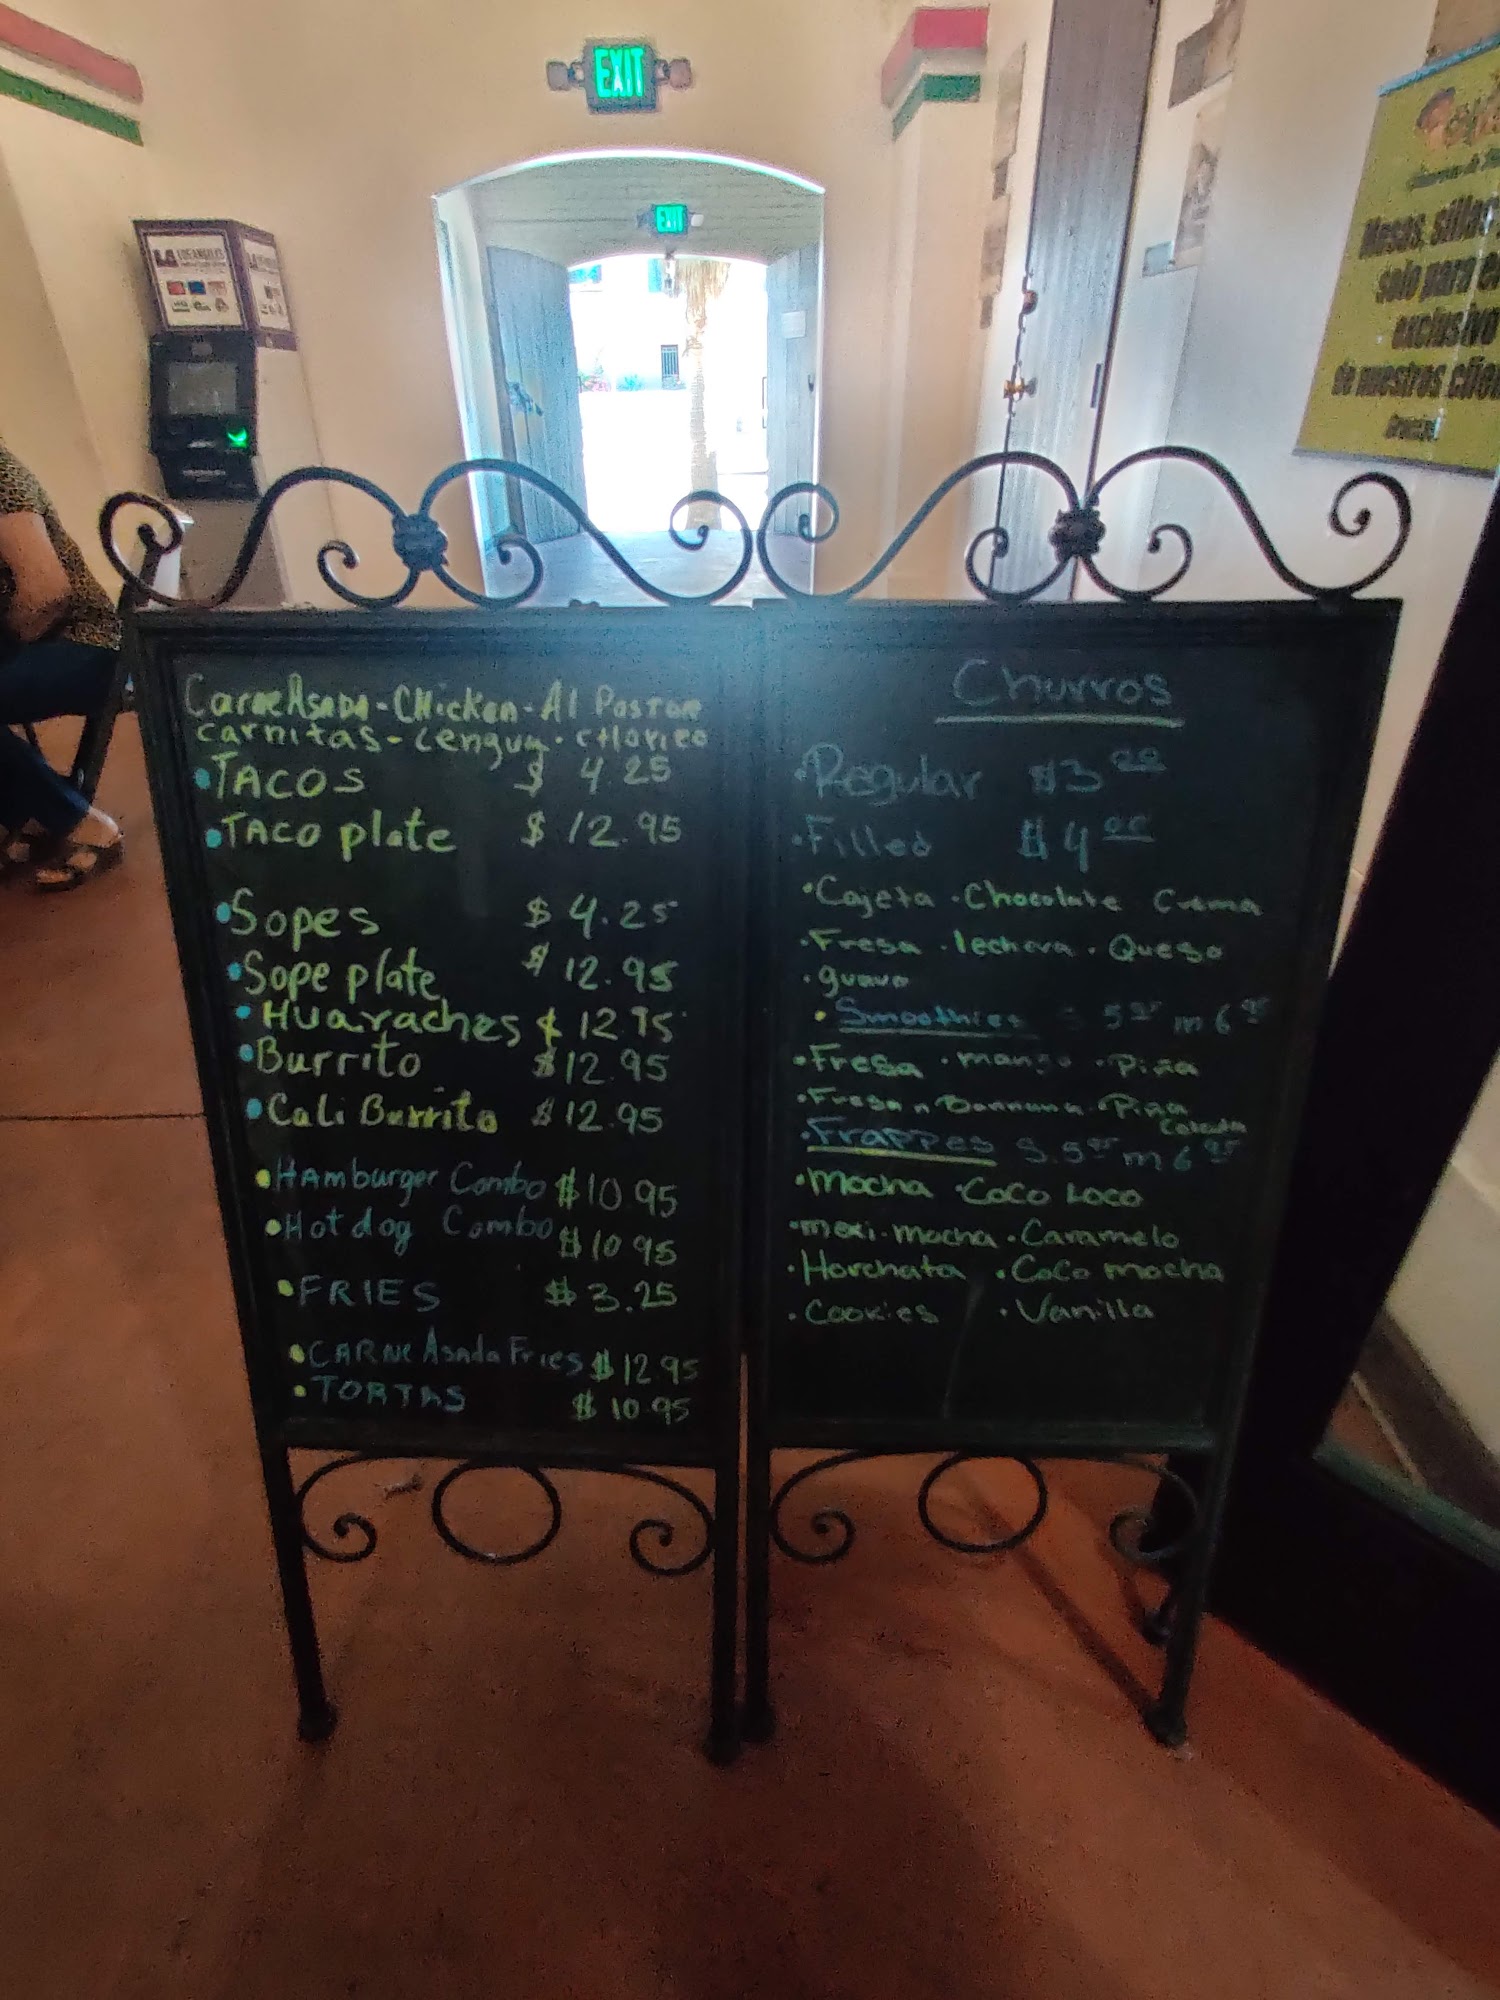 EXIT
EXIT
LA LOS ANGELES
Mesas, sillas
solo para el
exclusivo
de nuestros
Carne Asada - CHicken - Al Pastor
carnitas - Lengua · cHorizo
• TACOS $ 4.25
• TACO plate $ 12.95
• Sopes $ 4.25
• Sope plate $ 12.95
• Huaraches $ 12.95
• Burrito $ 12.95
• Cali Burrito $ 12.95
• HAmburger Combo $ 10 95
• Hot dog Combo $ 10 95
• FRIES $ 3.25
• CARNe Asada Fries $ 12.95
• TORTAS $ 10.95
Churros
• Regular $3 00
• Filled $4
• Cajeta • Chocolate Crema
• Fresa • lechera • Queso
• guava
• Smoothies 5 95 m 6 95
• Fresa • mango • Piña
• Fresa n Bannana • Piña
Colada
• Frappes S. 5 95 m 6 95
• Mocha • CoCo Loco
• mexi-mocha • Caramelo
• Horchata • CoCo mocha
• Cookies • Vanilla